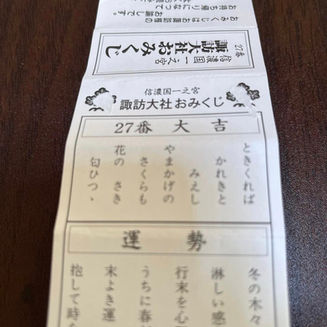 おみくじはお諏訪様の
お諭しです。
お持ち帰りになって
27番
信濃国一之宮
諏訪大社おみくじ
信濃国一之宮
諏訪大社 おみくじ
27番 大吉
ときくれば
かれきと
みえし
やまかげの
さくらも
花の さき
匂ひつゝ
運勢
冬の木々
淋しい感
行末を心
うちに春
末よき運
抱して時